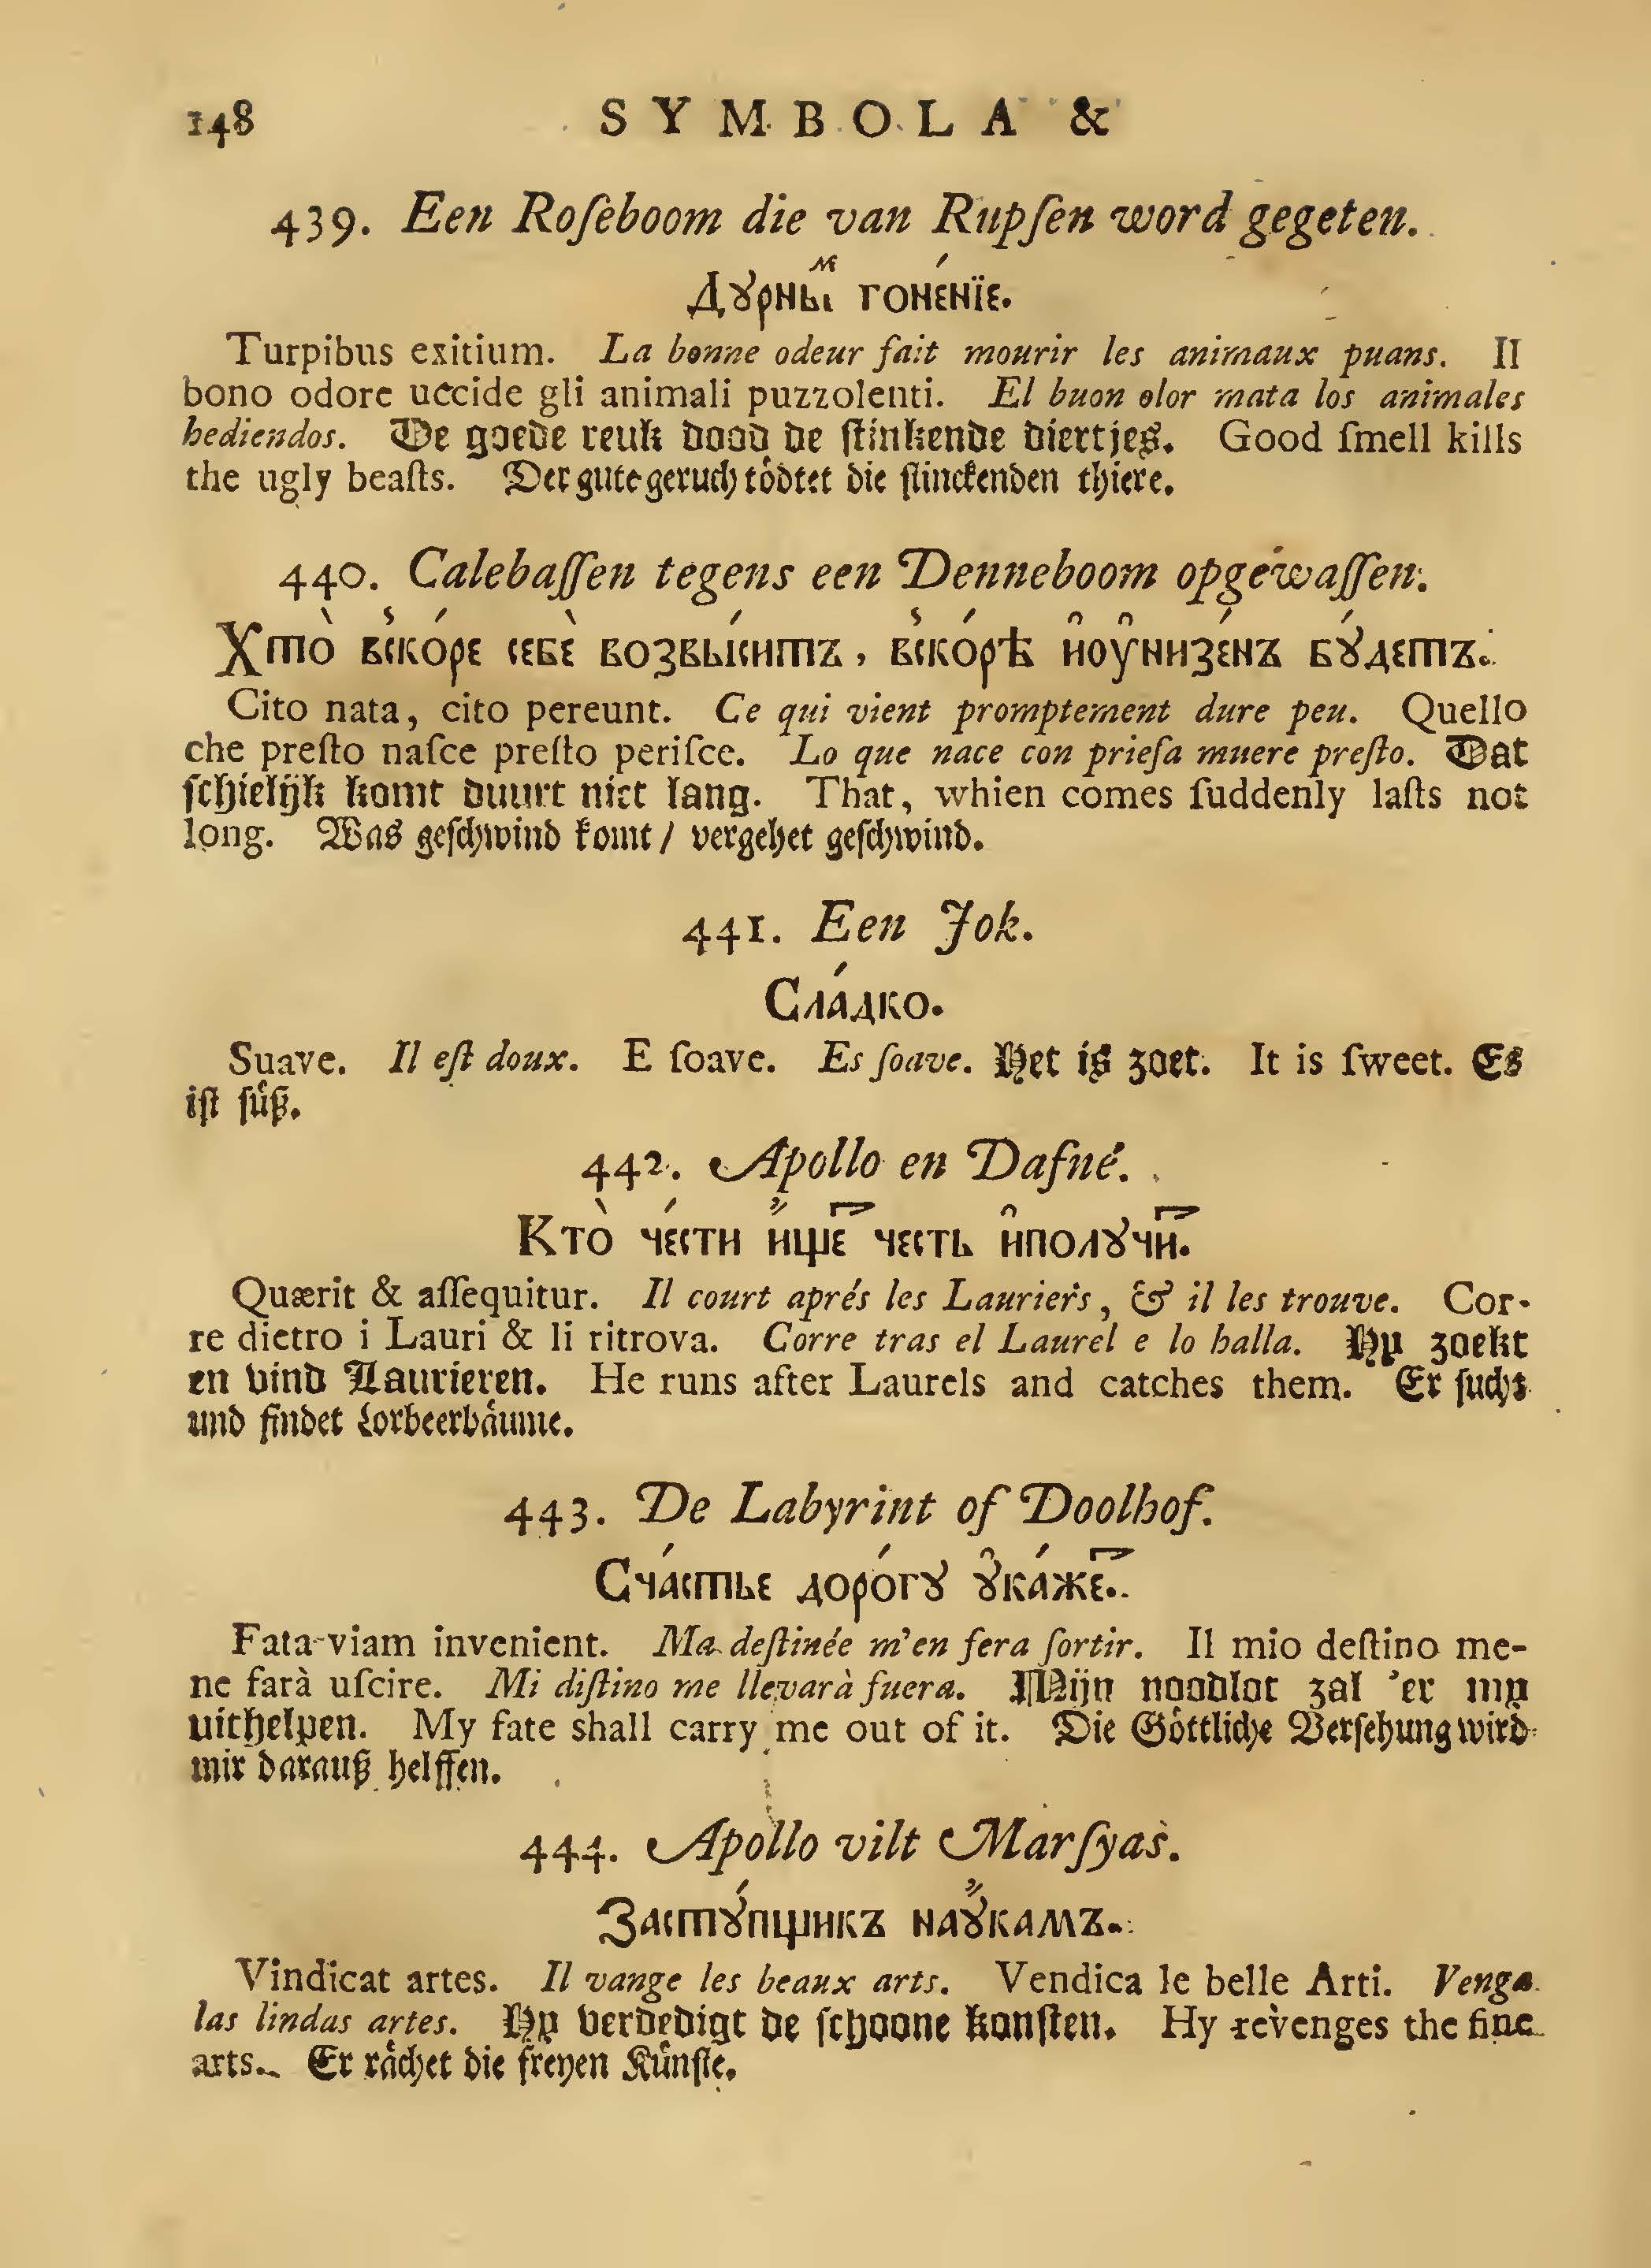 148 SYMBOLA &
439. Een Roſeboom die van Rupſen word gegeten.
Дꙋрныⷨ гоне́нїе.
Turpibus exitium. La bonne odeur fait mourir les animaux puans. Il
bono odore uccide gli animali puzzolenti. El buon olor mata los animales
hediendos. De goede reuk dood de ſtinkende diertjes. Good ſmell kills
the ugly beaſts. Der gute geruch toͤdtet die ſtinckenden thiere.
440. Calebaſſen tegens een Denneboom opgewaſſen.
Хто̀ вско́ре себѐ возвы́ситъ, вско́рѣ и҆оу҆низе́нъ бꙋ́детъ.
Cito nata, cito pereunt. Ce qui vient promptement dure peu. Quello
che preſto naſce preſto periſce. Lo que nace con prieſa muere preſto. Dat
ſchielijk komt duurt niet lang. That, whien comes ſuddenly laſts not
long. Was geſchwind komt / vergehet geſchwind.
441. Een Jok.
Сла́дко.
Suave. Il eſt doux. E ſoave. Es ſoave. Het is zoet. It is ſweet. Es
iſt ſuͤß.
442. Apollo en Dafné.
Кто̀ че́сти и҆́щеⷮ честь и҆полꙋчиⷮ.
Quærit & aſſequitur. Il court aprés les Lauriers, & il les trouve. Cor-
re dietro i Lauri & li ritrova. Corre tras el Laurel e lo halla. Hy zoekt
en vind Laurieren. He runs after Laurels and catches them. Er ſucht
und findet Lorbeerbaͤume.
443. De Labyrint of Doolhof.
Сча́стье доро́гꙋ ꙋ҆ка́жеⷮ.
Fata viam invenient. Ma deſtinée m'en fera ſortir. Il mio deſtino me-
ne farà uſcire. Mi diſtino me llevarà fuera. Mijn noodlot zal 'er my
uithelpen. My fate shall carry me out of it. Die Goͤttliche Verſehung wird
mir darauß helffen.
444. Apollo vilt Marſyas.
Застꙋ́пщикъ наꙋ҆́камъ.
Vindicat artes. Il vange les beaux arts. Vendica le belle Arti. Venga
las lindas artes. Hy verdedigt de ſchoone konſten. Hy revenges the fine
arts. Er raͤchet die freyen Kuͤnſte.